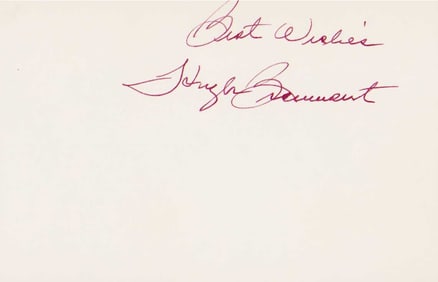 Best Wishes
Hugh Beaumont